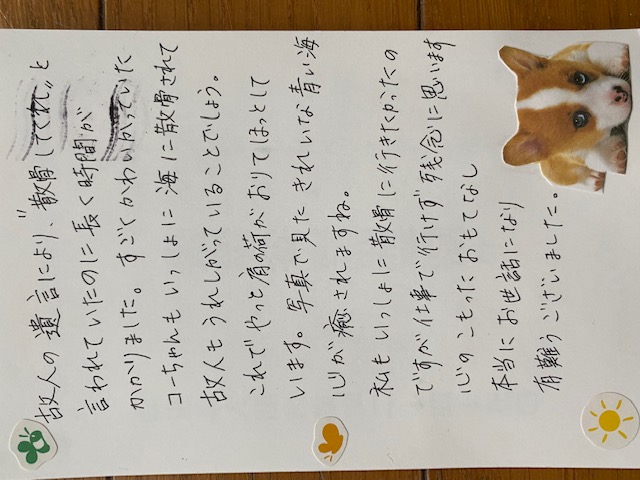 故人の遺言により、"散骨してくれ"と
言われていたのに長く時間が
かかりました。すごくかわいがっていた
コーちゃんもいっしょに海に散骨されて
故人もうれしがっていることでしょう。
これでやっと肩の荷がおりてほっとして
います。写真で見たきれいな青い海
心が癒されますね。
私もいっしょに散骨に行きたかったの
ですが仕事で行けず残念に思います
心のこもったおもてなし
本当にお世話になり
有難うございました。